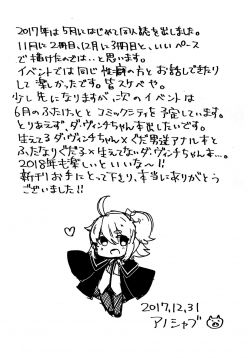 2017年は5月にはじめて同人誌を出しました。
11月に2冊目、12月に3冊目と、いいペース
で描けたのでは…と思います。
イベントでは同じ性癖の方とお話しできたり
して楽しかったです。皆スケベや。
少し先になりますが、次のイベントは
6月のふたけっとと コミックシティを予定しています。
とりあえず、ダ・ヴィンチちゃん本出したいです。
生えてるダ・ヴィンチちゃん×ぐだ男逆アナルすと
ふたなりぐだ子×生えてないダ・ヴィンチちゃん…。
2018年も楽しいといいな〜!!
新刊お手にとって下さり、本当にありがとう
ございました!!
2017.12.31
アノシャブ